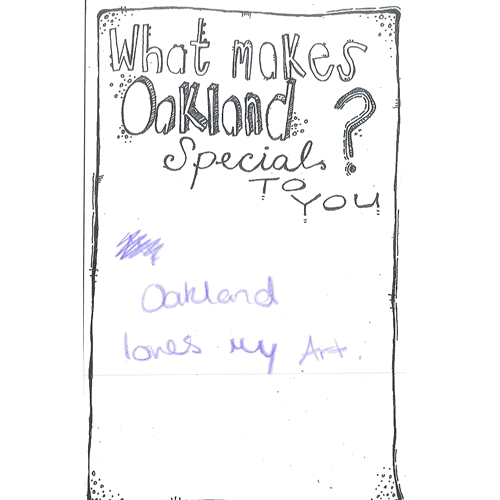 What makes
Oakland ?
Special
TO
YOU
Oakland
loves my Art.